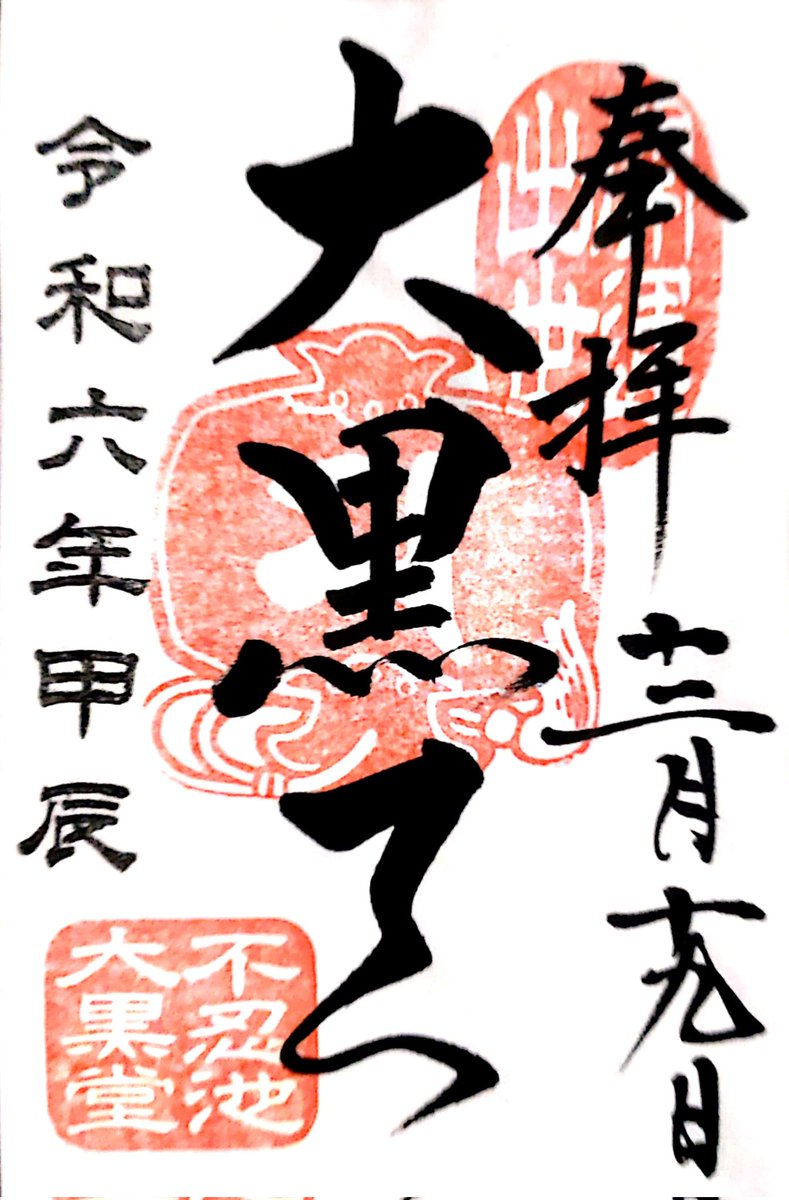 奉拝 十二月十九日
開運
出世
大黒天
令和六年甲辰
不忍池
大黒堂